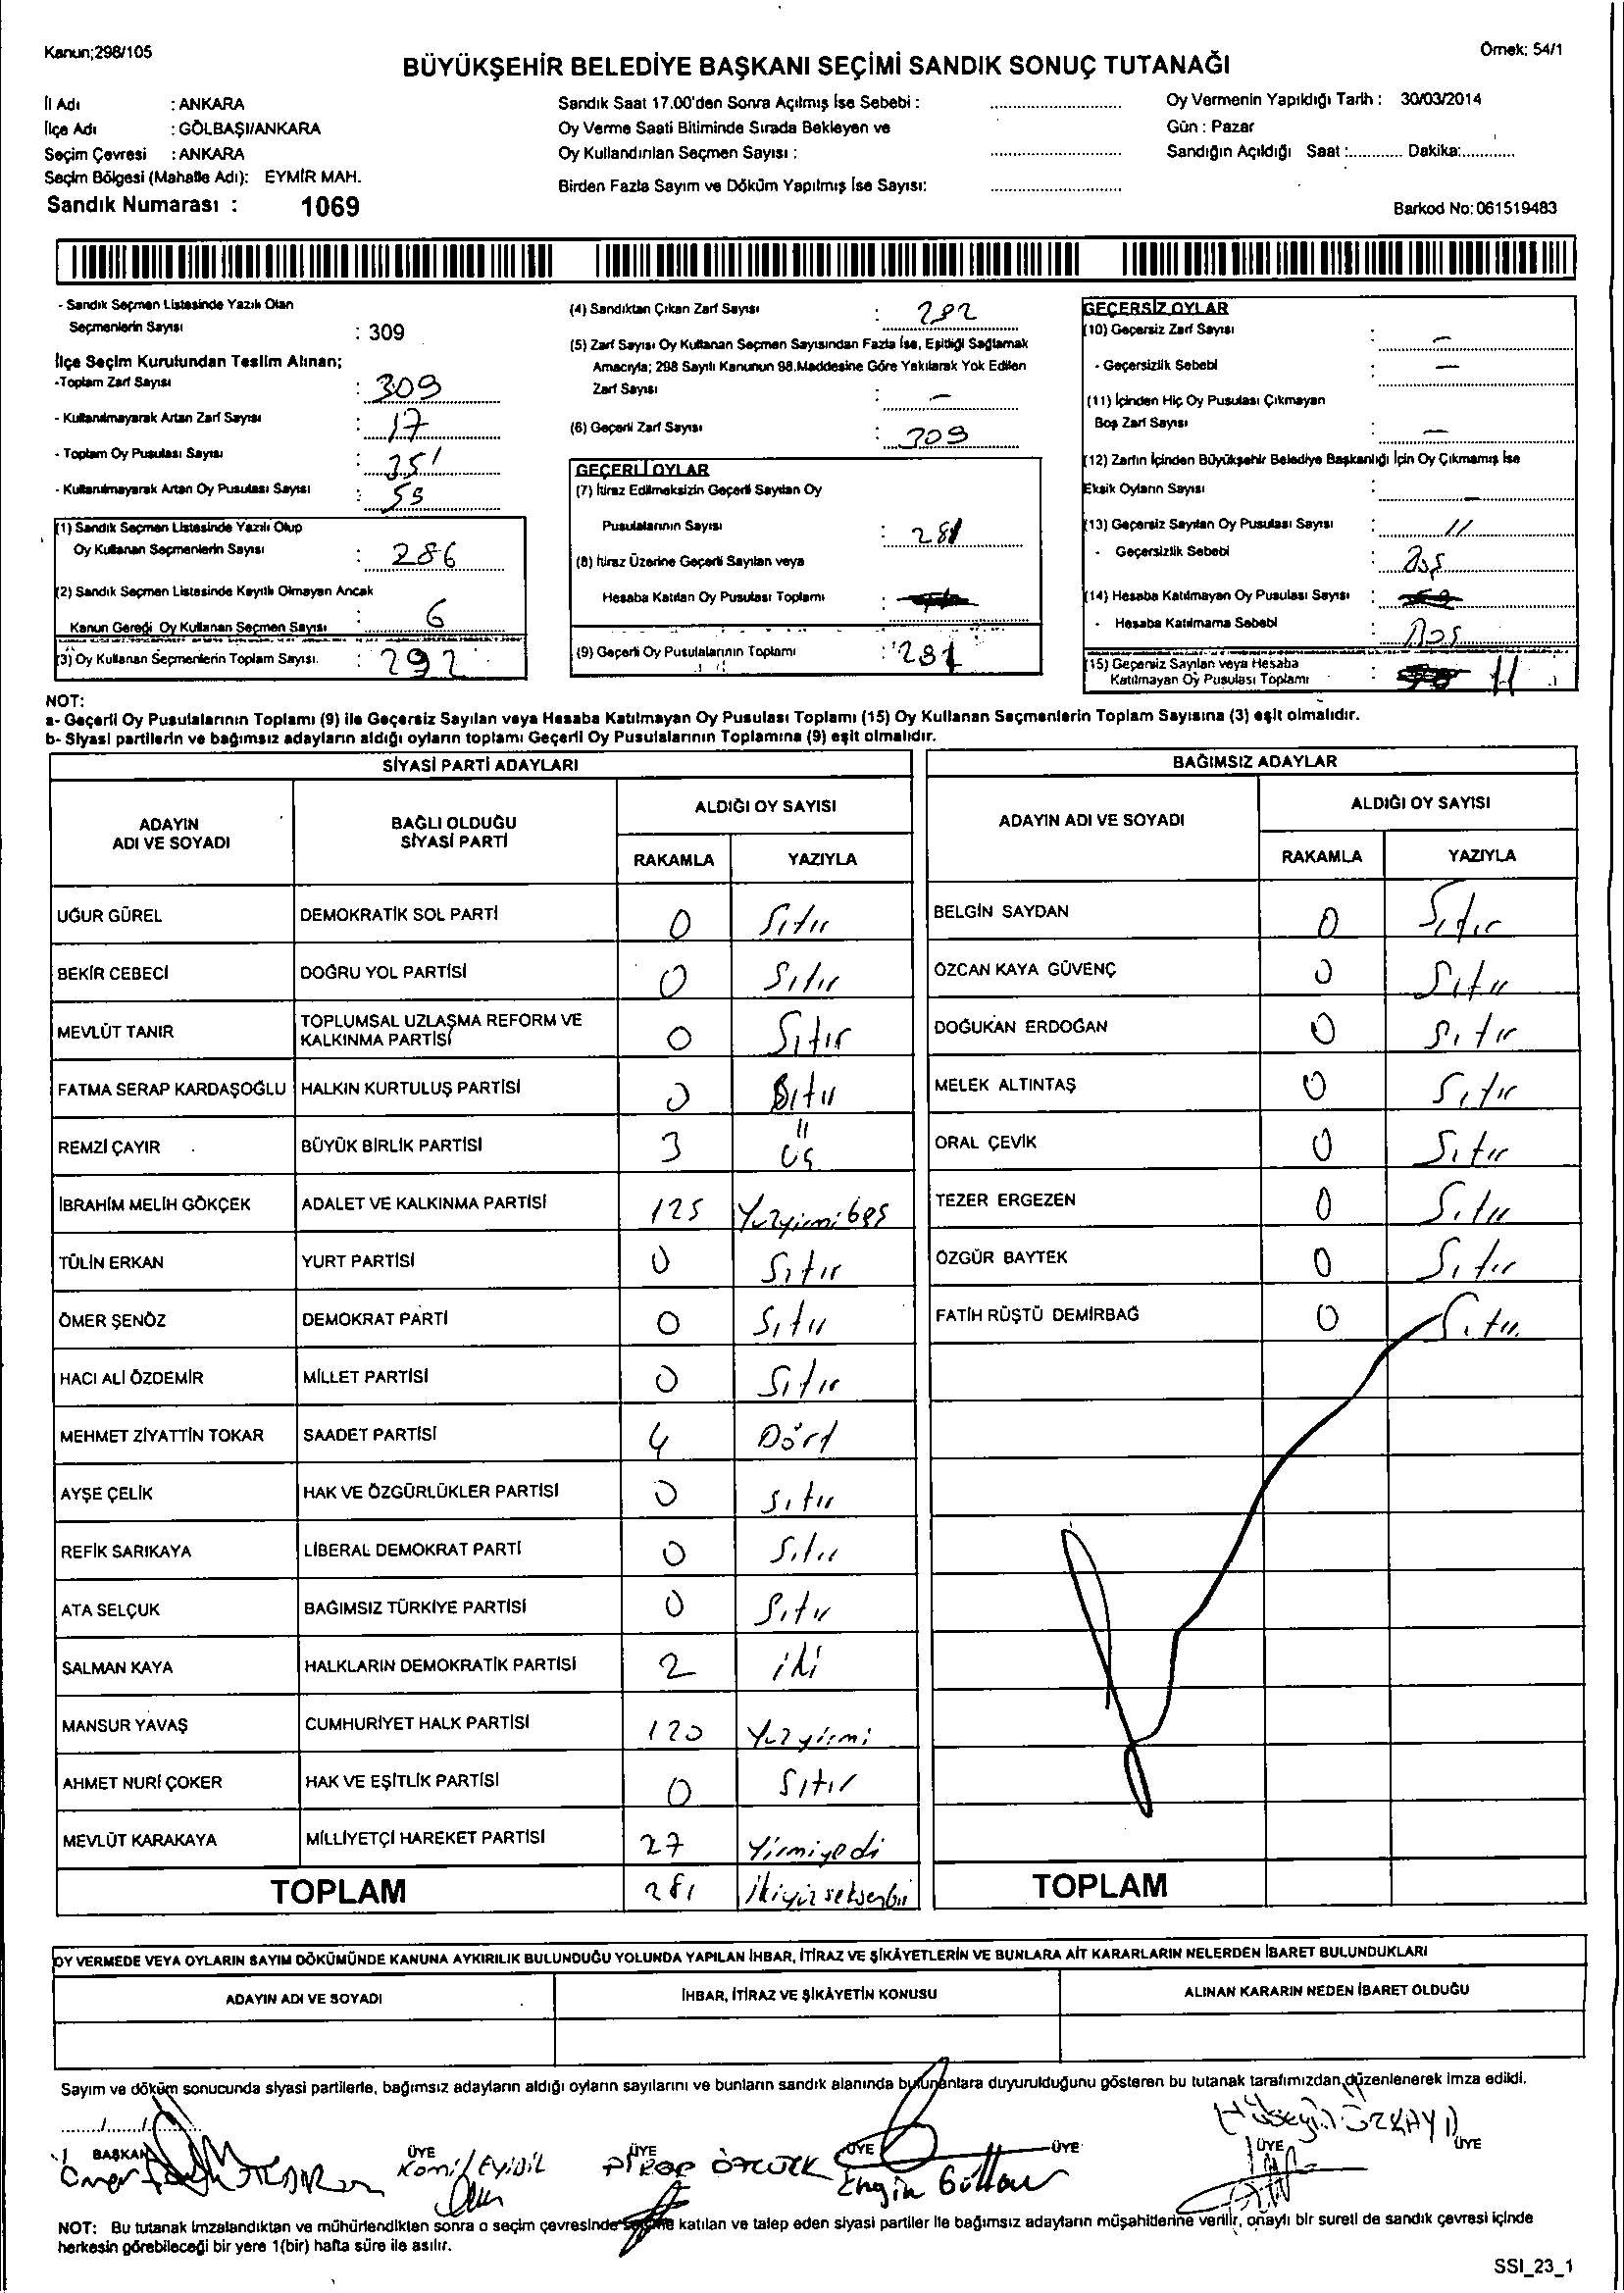 Kanun;298/105
Örnek: 54/1
BÜYÜKŞEHİR BELEDİYE BAŞKANI SEÇİMİ SANDIK SONUÇ TUTANAĞI
İl Adı : ANKARA
İlçe Adı : GÖLBAŞI/ANKARA
Seçim Çevresi : ANKARA
Seçim Bölgesi (Mahalle Adı): EYMİR MAH.
Sandık Numarası : 1069
Sandık Saat 17.00'den Sonra Açılmış İse Sebebi :
Oy Verme Saati Bitiminde Sırada Bekleyen ve
Oy Kullandırılan Seçmen Sayısı :
Birden Fazla Sayım ve Döküm Yapılmış İse Sayısı:
Oy Vermenin Yapıldığı Tarih : 30/03/2014
Gün : Pazar
Sandığın Açıldığı Saat :............ Dakika:............
Barkod No: 061519483
- Sandık Seçmen Listesinde Yazılı Olan
Seçmenlerin Sayısı : 309
İlçe Seçim Kurulundan Teslim Alınan;
-Toplam Zarf Sayısı : 309
- Kullanılmayarak Artan Zarf Sayısı : 17
- Toplam Oy Pusulası Sayısı : 351
- Kullanılmayarak Artan Oy Pusulası Sayısı : 59
(1) Sandık Seçmen Listesinde Yazılı Olup
Oy Kullanan Seçmenlerin Sayısı : 286
(2) Sandık Seçmen Listesinde Kayıtlı Olmayan Ancak
Kanun Gereği Oy Kullanan Seçmen Sayısı : 6
(3) Oy Kullanan Seçmenlerin Toplam Sayısı. : 292
(4) Sandıktan Çıkan Zarf Sayısı : 292
(5) Zarf Sayısı Oy Kullanan Seçmen Sayısından Fazla İse, Eşitliği Sağlamak
Amacıyla; 298 Sayılı Kanunun 98.Maddesine Göre Yakılarak Yok Edilen
Zarf Sayısı : -
(6) Geçerli Zarf Sayısı : 309
GEÇERLİ OYLAR
(7) İtiraz Edilmeksizin Geçerli Sayılan Oy
Pusulalarının Sayısı : 281
(8) İtiraz Üzerine Geçerli Sayılan veya
Hesaba Katılan Oy Pusulası Toplamı :
(9) Geçerli Oy Pusulalarının Toplamı : 281
GEÇERSİZ OYLAR
(10) Geçersiz Zarf Sayısı : -
- Geçersizlik Sebebi : -
(11) İçinden Hiç Oy Pusulası Çıkmayan
Boş Zarf Sayısı : -
(12) Zarfın İçinden Büyükşehir Belediye Başkanlığı İçin Oy Çıkmamış İse
Eksik Oyların Sayısı : -
(13) Geçersiz Sayılan Oy Pusulası Sayısı : 11
- Geçersizlik Sebebi :
(14) Hesaba Katılmayan Oy Pusulası Sayısı :
- Hesaba Katılmama Sebebi :
(15) Geçersiz Sayılan veya Hesaba
Katılmayan Oy Pusulası Toplamı : 11
NOT:
a- Geçerli Oy Pusulalarının Toplamı (9) ile Geçersiz Sayılan veya Hesaba Katılmayan Oy Pusulası Toplamı (15) Oy Kullanan Seçmenlerin Toplam Sayısına (3) eşit olmalıdır.
b- Siyasi partilerin ve bağımsız adayların aldığı oyların toplamı Geçerli Oy Pusulalarının Toplamına (9) eşit olmalıdır.
SİYASİ PARTİ ADAYLARI
ADAYIN ADI VE SOYADI BAĞLI OLDUĞU SİYASİ PARTİ ALDIĞI OY SAYISI
RAKAMLA YAZIYLA
UĞUR GÜREL DEMOKRATİK SOL PARTİ 0 Sıfır
BEKİR CEBECİ DOĞRU YOL PARTİSİ 0 Sıfır
MEVLÜT TANIR TOPLUMSAL UZLAŞMA REFORM VE KALKINMA PARTİSİ 0 Sıfır
FATMA SERAP KARDAŞOĞLU HALKIN KURTULUŞ PARTİSİ 0 Sıfır
REMZİ ÇAYIR BÜYÜK BİRLİK PARTİSİ 3 Üç
İBRAHİM MELİH GÖKÇEK ADALET VE KALKINMA PARTİSİ 125 Yüzyirmibeş
TÜLİN ERKAN YURT PARTİSİ 0 Sıfır
ÖMER ŞENÖZ DEMOKRAT PARTİ 0 Sıfır
HACI ALİ ÖZDEMİR MİLLET PARTİSİ 0 Sıfır
MEHMET ZİYATTİN TOKAR SAADET PARTİSİ 4 Dört
AYŞE ÇELİK HAK VE ÖZGÜRLÜKLER PARTİSİ 0 Sıfır
REFİK SARIKAYA LİBERAL DEMOKRAT PARTİ 0 Sıfır
ATA SELÇUK BAĞIMSIZ TÜRKİYE PARTİSİ 0 Sıfır
SALMAN KAYA HALKLARIN DEMOKRATİK PARTİSİ 2 iki
MANSUR YAVAŞ CUMHURİYET HALK PARTİSİ 120 Yüzyirmi
AHMET NURİ ÇOKER HAK VE EŞİTLİK PARTİSİ 0 Sıfır
MEVLÜT KARAKAYA MİLLİYETÇİ HAREKET PARTİSİ 27 Yirmiyedi
TOPLAM 281 ikiyüzseksenbir
BAĞIMSIZ ADAYLAR
ADAYIN ADI VE SOYADI ALDIĞI OY SAYISI
RAKAMLA YAZIYLA
BELGİN SAYDAN 0 Sıfır
ÖZCAN KAYA GÜVENÇ 0 Sıfır
DOĞUKAN ERDOĞAN 0 Sıfır
MELEK ALTINTAŞ 0 Sıfır
ORAL ÇEVİK 0 Sıfır
TEZER ERGEZEN 0 Sıfır
ÖZGÜR BAYTEK 0 Sıfır
FATİH RÜŞTÜ DEMİRBAĞ 0 Sıfır
TOPLAM
OY VERMEDE VEYA OYLARIN SAYIM DÖKÜMÜNDE KANUNA AYKIRILIK BULUNDUĞU YOLUNDA YAPILAN İHBAR, İTİRAZ VE ŞİKÂYETLERİN VE BUNLARA AİT KARARLARIN NELERDEN İBARET BULUNDUKLARI
ADAYIN ADI VE SOYADI İHBAR, İTİRAZ VE ŞİKÂYETİN KONUSU ALINAN KARARIN NEDEN İBARET OLDUĞU
Sayım ve döküm sonucunda siyasi partilerle, bağımsız adayların aldığı oyların sayılarını ve bunların sandık alanında bulunanlara duyurulduğunu gösteren bu tutanak tarafımızdan düzenlenerek imza edildi.
...../...../
BAŞKAN ÜYE ÜYE ÜYE ÜYE ÜYE ÜYE
Ömer
ÖZTÜRK Engin
Hüseyin ÖZKAYA
NOT: Bu tutanak imzalandıktan ve mühürlendikten sonra o seçim çevresinde seçime katılan ve talep eden siyasi partiler ile bağımsız adayların müşahitlerine verilir, onaylı bir sureti de sandık çevresi içinde
herkesin görebileceği bir yere 1(bir) hafta süre ile asılır.
SSI_23_1